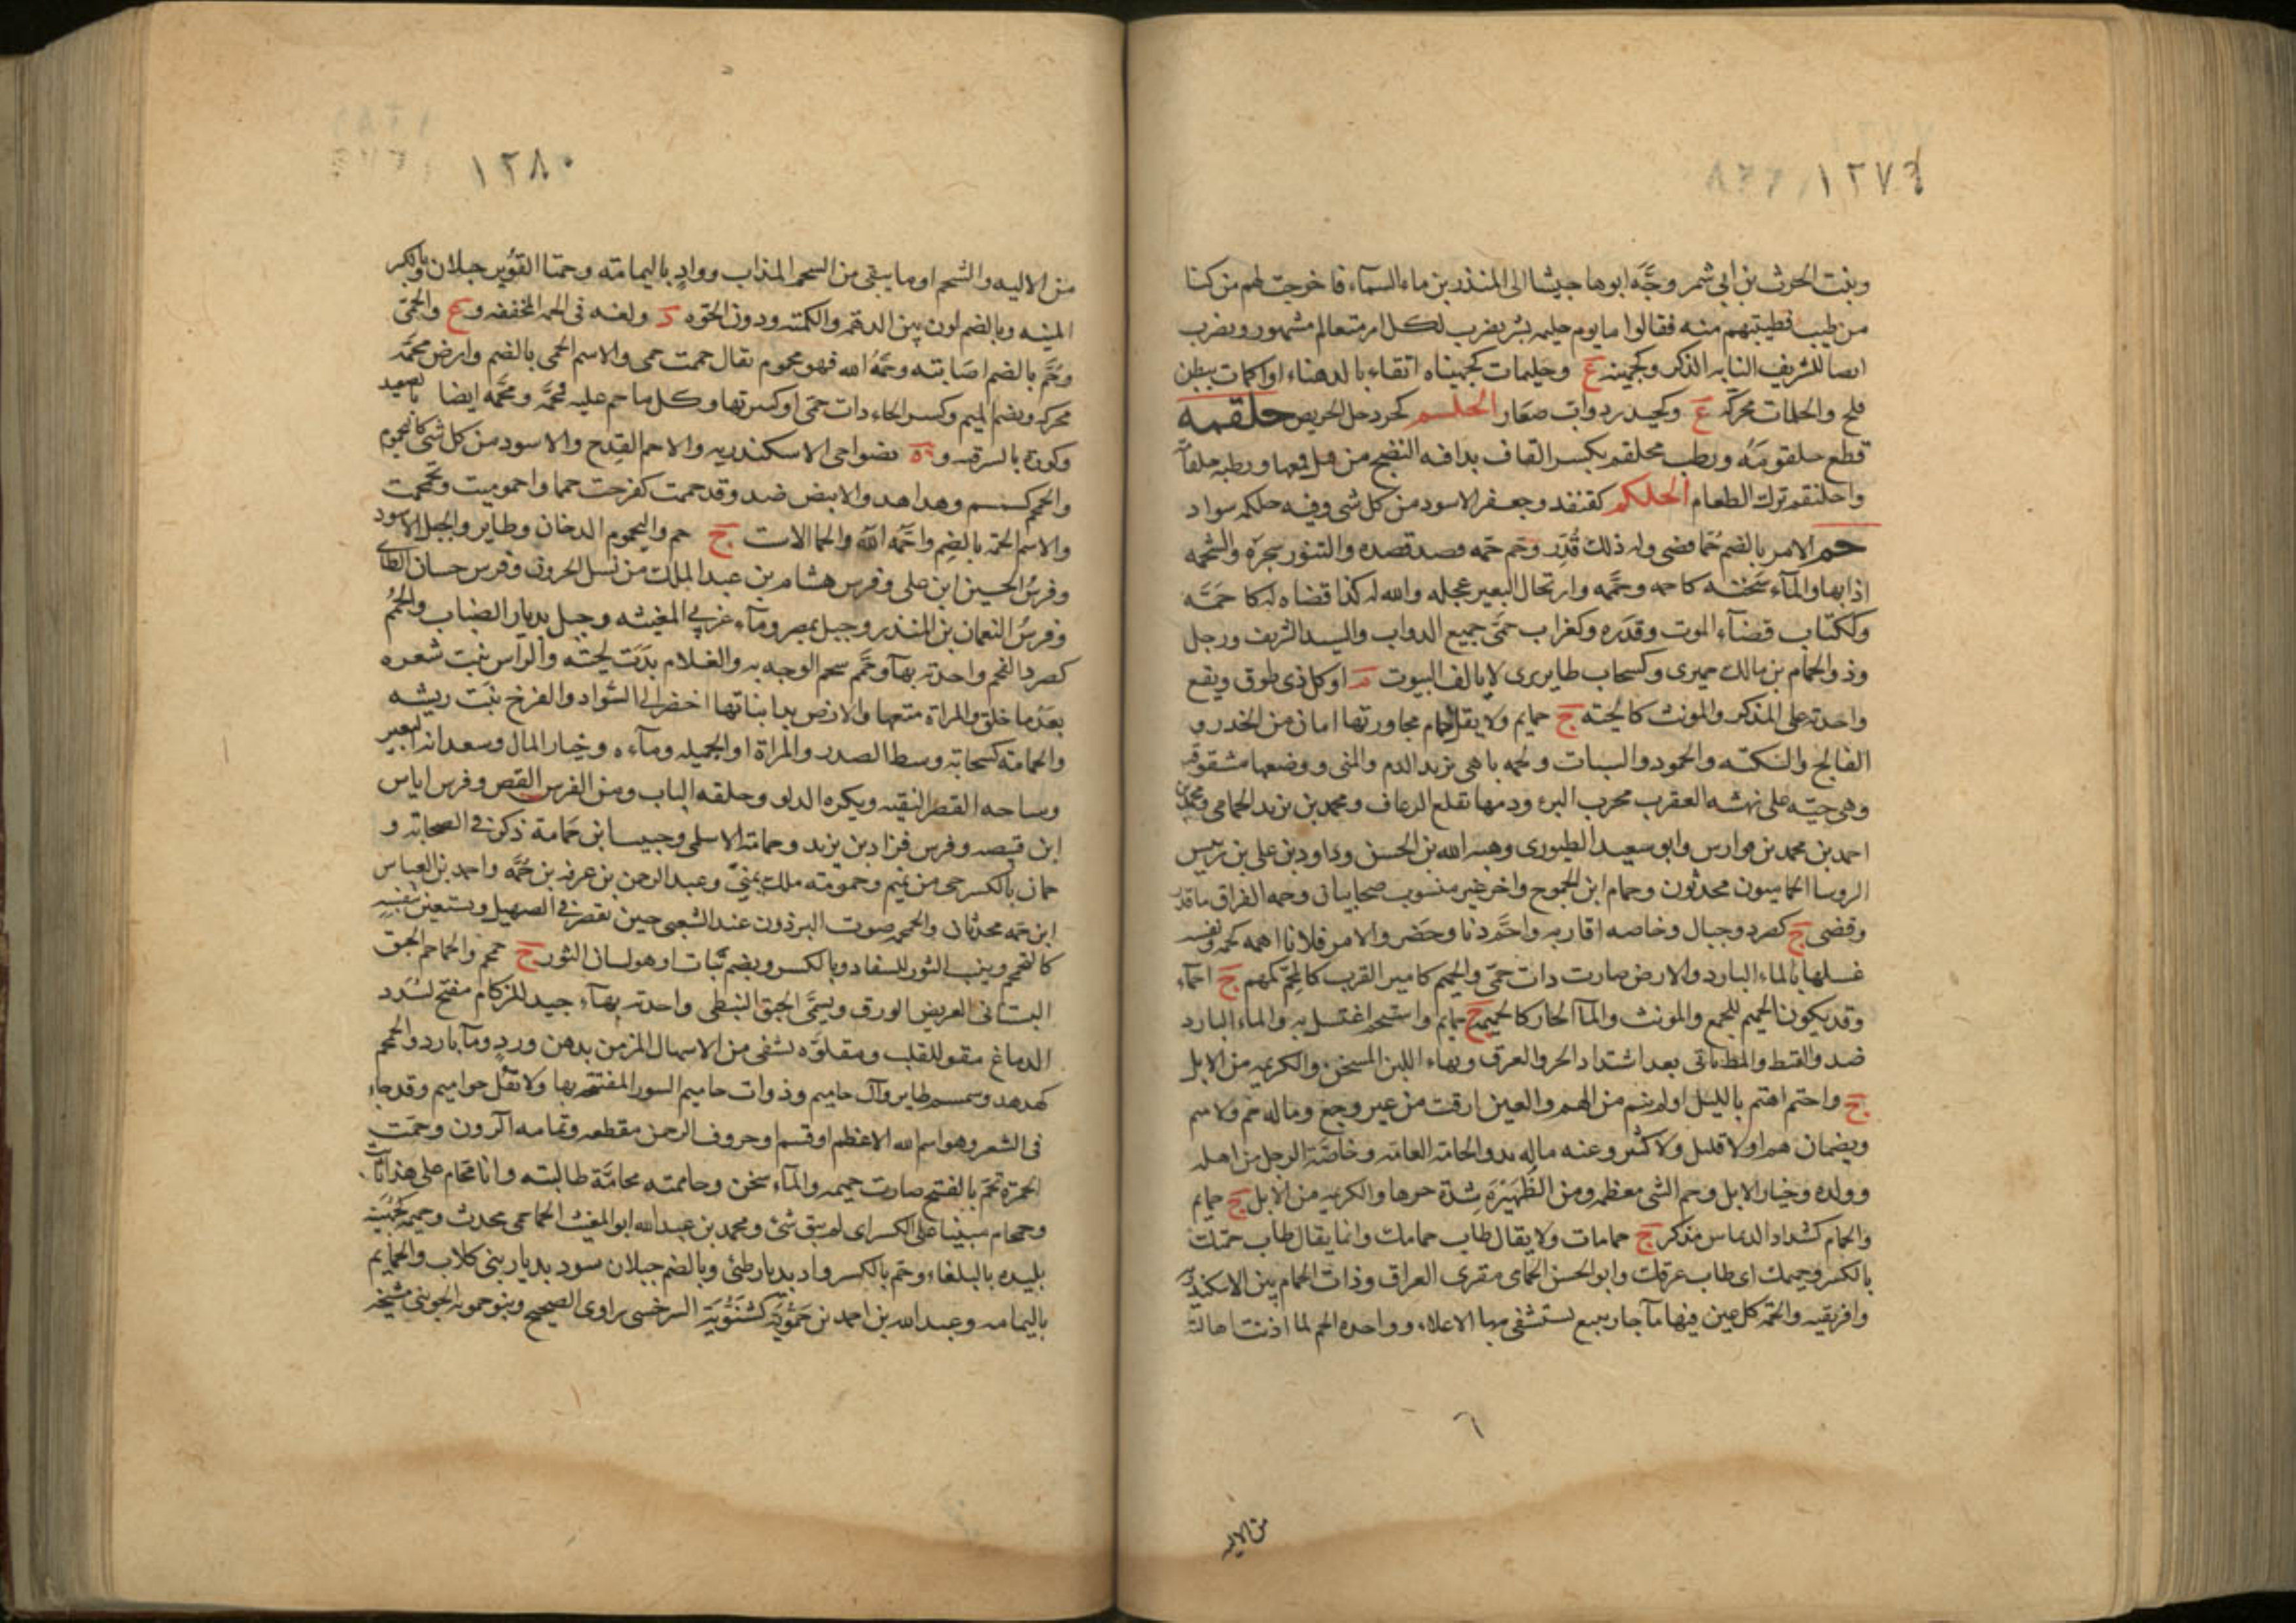 ١٢٧٩
وبنت الحرث بن ابي شمر وجَّه ابوها جيشا الى المنذر بن ماء السمآء فاخرجت لهم مركنا
من طيب فطيبتهم منه فقالوا ما يوم حليمه بسر يضرب لكل امر متعالم مشهور ويضرب
ايضا للشريف النابه الذكر وكجهينه ع وحليمات كجهيناه انقاء بالدهناء او اكمات ببطن
فلج والحلمات محركه ع وكحيدر دواب صغار الحلسم كجردحل الحريص حلقمه
قطع حلقومه ورطب محلقم بكسر القاف بدا فيه النضج من قبل قمعها ورطبه حلقامه
واحلنقم ترك الطعام الحلكم كقنفد وجعفر الاسود من كل شى وفيه حلكمه سواد
حم الامر بالضم حُمّا قضى وله ذلك قُدِّر وحَم حمه قصد قصده والتنور سجره والشحمه
اذابها والمآء سخنه كاحمه وحمَّمه وارتحال البعير عجله والله له كذا قضاه له كاحَمَّه
وككتاب قضآء الموت وقدَره وكغراب حمَّى جميع الدواب والسيد الشريف ورجل
وذو الحمام بن مالك حميرى وكسحاب طاير برى لا يالف البيوت م او كل ذى طوق ويقع
واحدته على المذكر والمونث كالحيه ج حمايم ولا يقال حمام مجاورتها امان من الخدر و
الفالج والسكته والجمود والسبات ولحمه باهى يزيد الدم والمنى ووضعها مشقوقه
وهى حيّه على نهشه العقرب مجرب البرء ودمها تقلع الرعاف ومحمد بن يزيد الحمامى ومحمد بن
احمد بن محمد بن فوارس وابو سعيد الطيورى وهبه الله بن الحسن وداود بن على بن رئيس
الروسا الحماميون محدثون وحمام ابن الجموح واخر غير منسوب صحابيان وحمه الفراق ما قدر
وقضى ج كصرد وجبال وخاصه اقاربه واحَمَّ دنا وحضر والامر فلانا اهمه كحمه ونفسه
غسلها بالماء البارد والارض صارت ذات حمّى والحميم كامير القريب كالمحم كمهم ج احمآء
وقد يكون الحميم للجمع والمونث والمآ الحار كالحميمه ج حمايم واستحم اغتسل به والماء البارد
ضد والقيظ والمطر ياتى بعد اشتداد الحر والعرق وبهاء اللبن المسخن والكريمه من الابل
ج واحتم اهتم بالليل او لم ينم من الهم والعين ارقت من غير وجع وماله حَم ولا سَم
ويضمان هم او لا قليل ولا كثير وعنه ماله بد والحامه العامه وخاصَّة الرجل من اهله
وولده وخيار الابل وحم الشى معظمه ومن الظهيرة شدة حرها والكريمه من الابل ج حمايم
والحمام كشداد الديماس مذكر ج حمامات ولا يقال طاب حمامك وانما يقال طاب حمتك
بالكسر وحميمك اى طاب عرقك وابو الحسن الحمامى مقرى العراق وذات الحمام بين الاسكندريه
وافريقيه والحمّه كل عين فيها مآ حار ينبع تستشفى بها الاعلاء وواحده الحم لما اذبت اهالته
من الاليه
١٢٨٠
من الاليه والشحم او ما يبقى من الشحم المذاب ووادٍ باليمامه وحمتا القوير جبلان وبالكسر
المنيه وبالضم لون بين الدهمه والكمته ودون الحوّه د ولغه فى الحمه المخففه و ع والحمّى
وحُمَّ بالضم اصابته وحَمَّهُ الله فهو محموم يقال حممت حمى والاسم الحمى بالضم وارض محمَّه
محركه وبضم الميم وكسر الحاء ذات حمَّى او كثيرتها وكل ما حم عليه فمحمَّه ومحمَّه ايضا ة بصعيد
وكورة بالشرقيه و ة بضواحى الاسكندريه والاحم القدح والاسود من كل شى كاليحموم
والحمحم كسمسم وهداهد والابيض ضد وقد حممت كفرحت حمما واحموميت وتحممت
والاسم الحمه بالضم واحَمَّه الله والحما الاست ج حم واليحموم الدخان وطاير والجبل الاسود
وفرسُ الحسين ابن على وفرس هشام بن عبد الملك من نسل الحرون وفرس حسان الطائى
وفرسُ النعمان بن المنذر وجبل بمصر ومآء غربي المغيثه وجبل بديار الضباب والحُمَم
كصرد الفحم واحدته بهآ وحمَّم سخم الوجه به والغلام بدَت لحيته والراس نبت شعره
بعد ما حلق والمراة متعها والارض بدا نباتها اخضر الى السَّواد والفرخ نبَت ريشه
والحمامه كسحابه وسط الصدر والمراة او الجميله ومآءه وخيار المال وسعدانه البعير
وساحه القصر النقيه وبكره الدلو وحلقه الباب ومن الفرس القص وفرس اياس
ابن قبيصه وفرس قراد بن يزيد وحمامه الاسلمى وحبيب ابن حمامة ذكرن في الصحابه و
حمان بالكسر حى من تميم وحمومه ملك يمنيّ وعبد الرحمن بن عرفه بن حُمَّه واحمد بن العباس
ابن حمه محدثان والحمحمه صوت البرذون عند الشعير حين يقصر في الصهيل ويستعين بنفسه
كالتحمحم ونبيب الثور للسفاد وبالكسر ويضم نبات او هو لسان الثور ج حمحم والحماحم الحبق
البستانى العريض الورق ويسمَّى الحبق النبطى واحدته بهآء جيد للزكام مفتح لسدد
الدماغ مقو للقلب ومقلوّه يشفى من الاسهال المزمن بدهن وردٍ ومآ بارد والحمحم
كهدهد وسمسم طاير وآل حاميم وذوات حاميم السور المفتتحه بها ولا تقل حواميم وقد جاء
فى الشعر وهو اسم الله الاعظم او قسم او حروف الرحمن مقطعه وتمامه آلر ون وحمَّت
الجمرة تحمّ بالفتح صارت حممه والمآء سخن وحاممته محامَّة طالبته وانا محام على هذا ثابت
وحمحام مبينا على الكسر اى لم يبق شئ ومحمد بن عبد الله ابو المغيث الحماحمى محدث وحميمه كجهينه
بليده بالبلقاء وحم بالكسر واد بديار طئى وبالضم جبلان سود بديار بنى كلاب والحمايم
باليمامه وعبد الله بن احمد بن حَمُّويَة كشَبُّويَة السرخسى راوى الصحيح وبنو حمويه الجوينى مشيخه